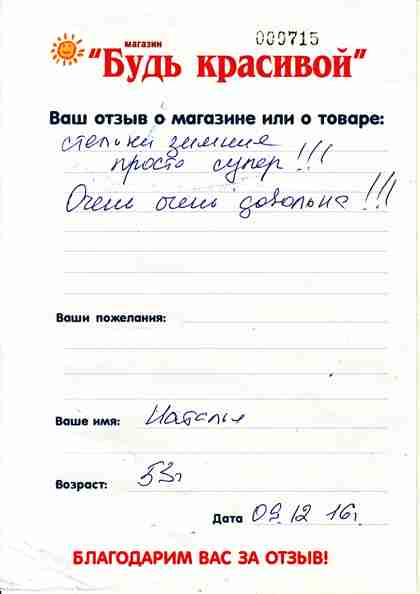 000715
магазин
"Будь красивой"
Ваш отзыв о магазине или о товаре:
стельки зимние
просто супер!!!
Очень очень довольна!!!
Ваши пожелания:
Ваше имя: Наталья
Возраст: 53г
Дата 09.12 16г
БЛАГОДАРИМ ВАС ЗА ОТЗЫВ!